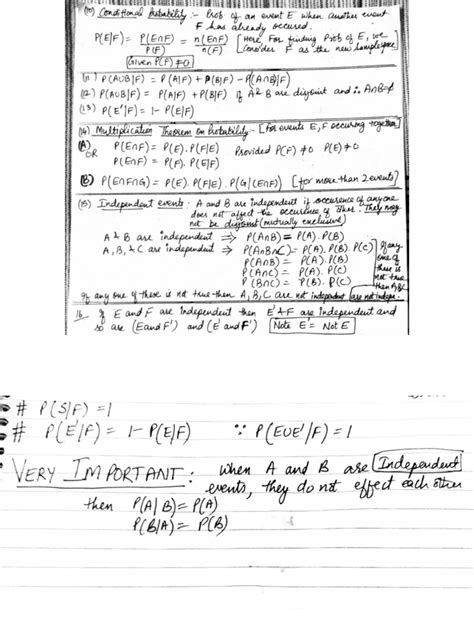 (10) Conditional Probability :- Prob. of an event E when another event
F has already occured.
P(E|F) = P(E∩F) / P(F) = n(E∩F) / n(F) [Here, For finding Prob of E, we
Consider F as the new Samplespace]
Given P(F) ≠ 0
(11) P(A∪B|F) = P(A|F) + P(B|F) - P(A∩B|F)
(12) P(A∪B|F) = P(A|F) + P(B|F) if A & B are disjoint and ∴ A∩B=ϕ
(13) P(E'|F) = 1 - P(E|F)
(14) Multiplication Theorem on Probability :- [For events E, F occuring together]
(A) P(E∩F) = P(E). P(F|E) Provided P(F) ≠ 0 P(E) ≠ 0
OR P(E∩F) = P(F). P(E|F)
(B) P(E∩F∩G) = P(E). P(F|E). P(G|(E∩F)) [for more than 2 events]
(15) Independent events : A and B are independent if occurence of anyone
does not affect the occurence of other. They may
not be disjoint (mutually exclusive)
A & B are independent ⇒ P(A∩B) = P(A). P(B)
A, B, & C are independent ⇒ P(A∩B∩C) = P(A). P(B). P(C)
P(A∩B) = P(A). P(B)
P(A∩C) = P(A). P(C)
P(B∩C) = P(B). P(C)
If any
one of
these is
not true
then A, B, C
are not indepe.
If any one of these is not true then A, B, C are not independent
16. If E and F are independent then E' & F are independent and
so are (E and F') and (E' and F') Note E' = Not E
# P(S|F) = 1
# P(E'|F) = 1- P(E|F) ∵ P(E∪E'|F) = 1
VERY IMPORTANT : When A and B are Independent
events, they do not effect each other
then P(A|B) = P(A)
P(B|A) = P(B)